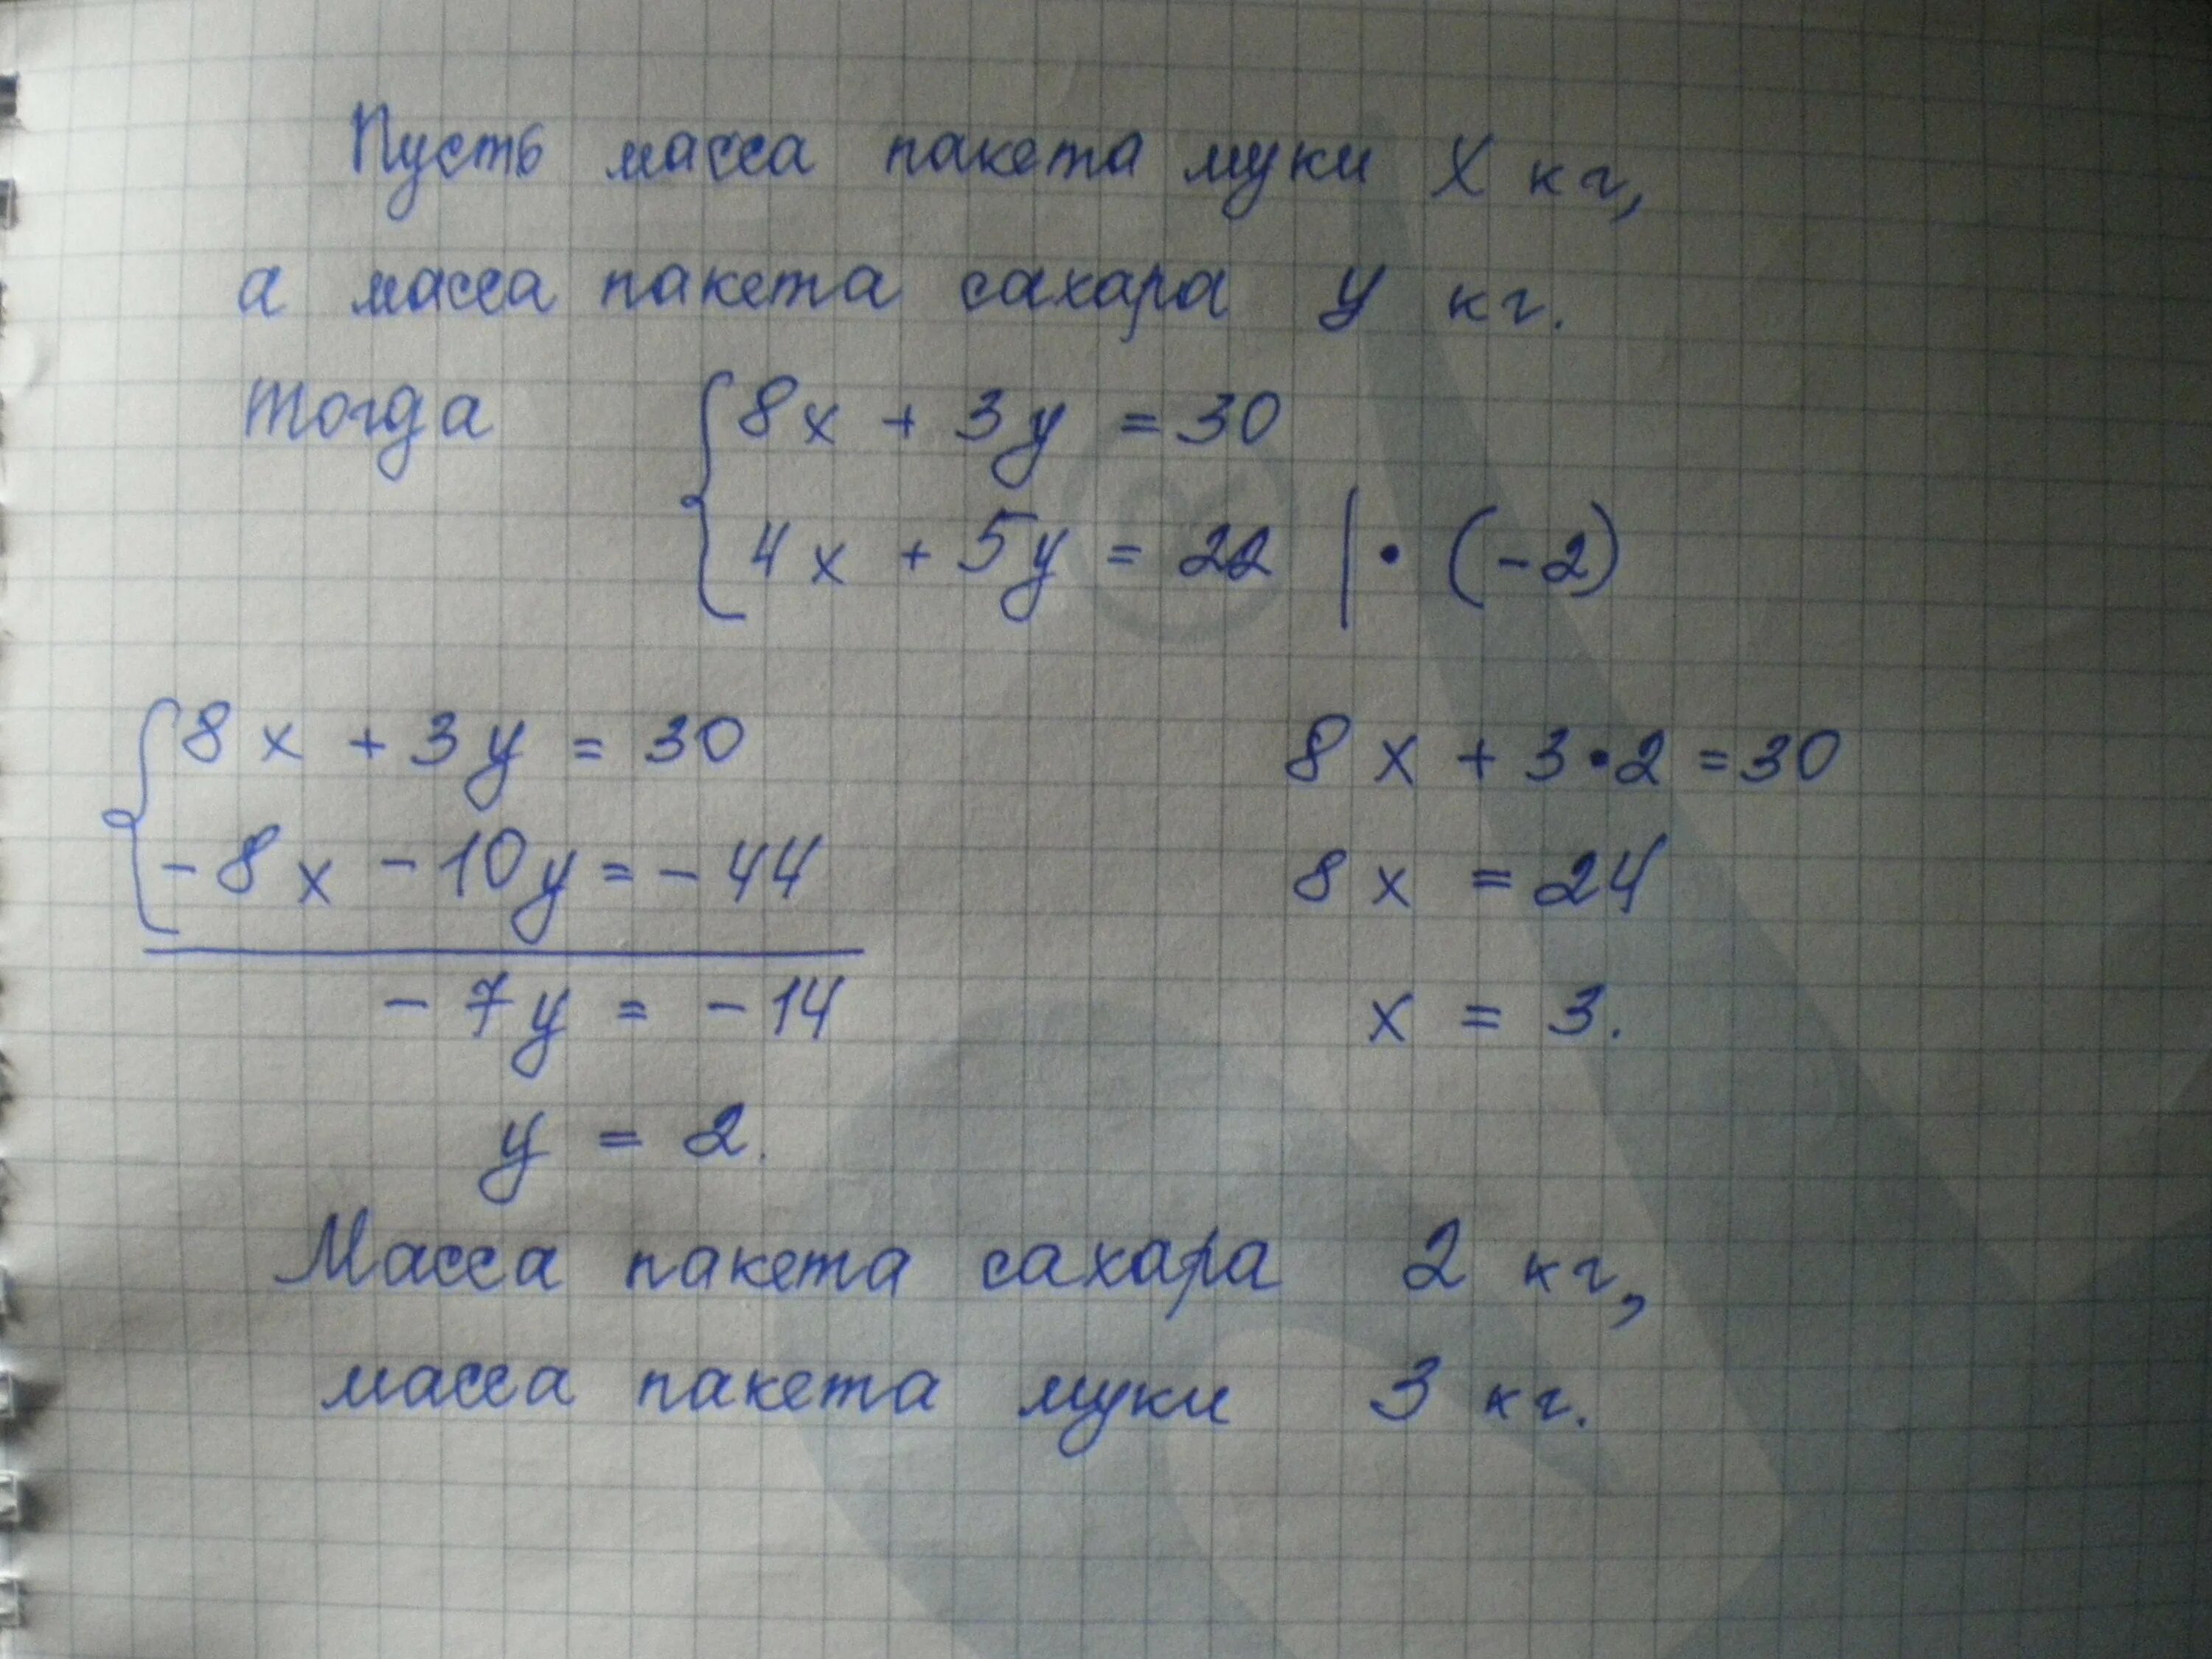 Пусть масса пакета муки X кг,
а масса пакета сахара y кг.
Тогда { 8x + 3y = 30
4x + 5y = 22 | • (-2)
{ 8x + 3y = 30
-8x - 10y = -44
-7y = -14
y = 2.
8x + 3•2 = 30
8x = 24
x = 3.
Масса пакета сахара 2 кг,
масса пакета муки 3 кг.